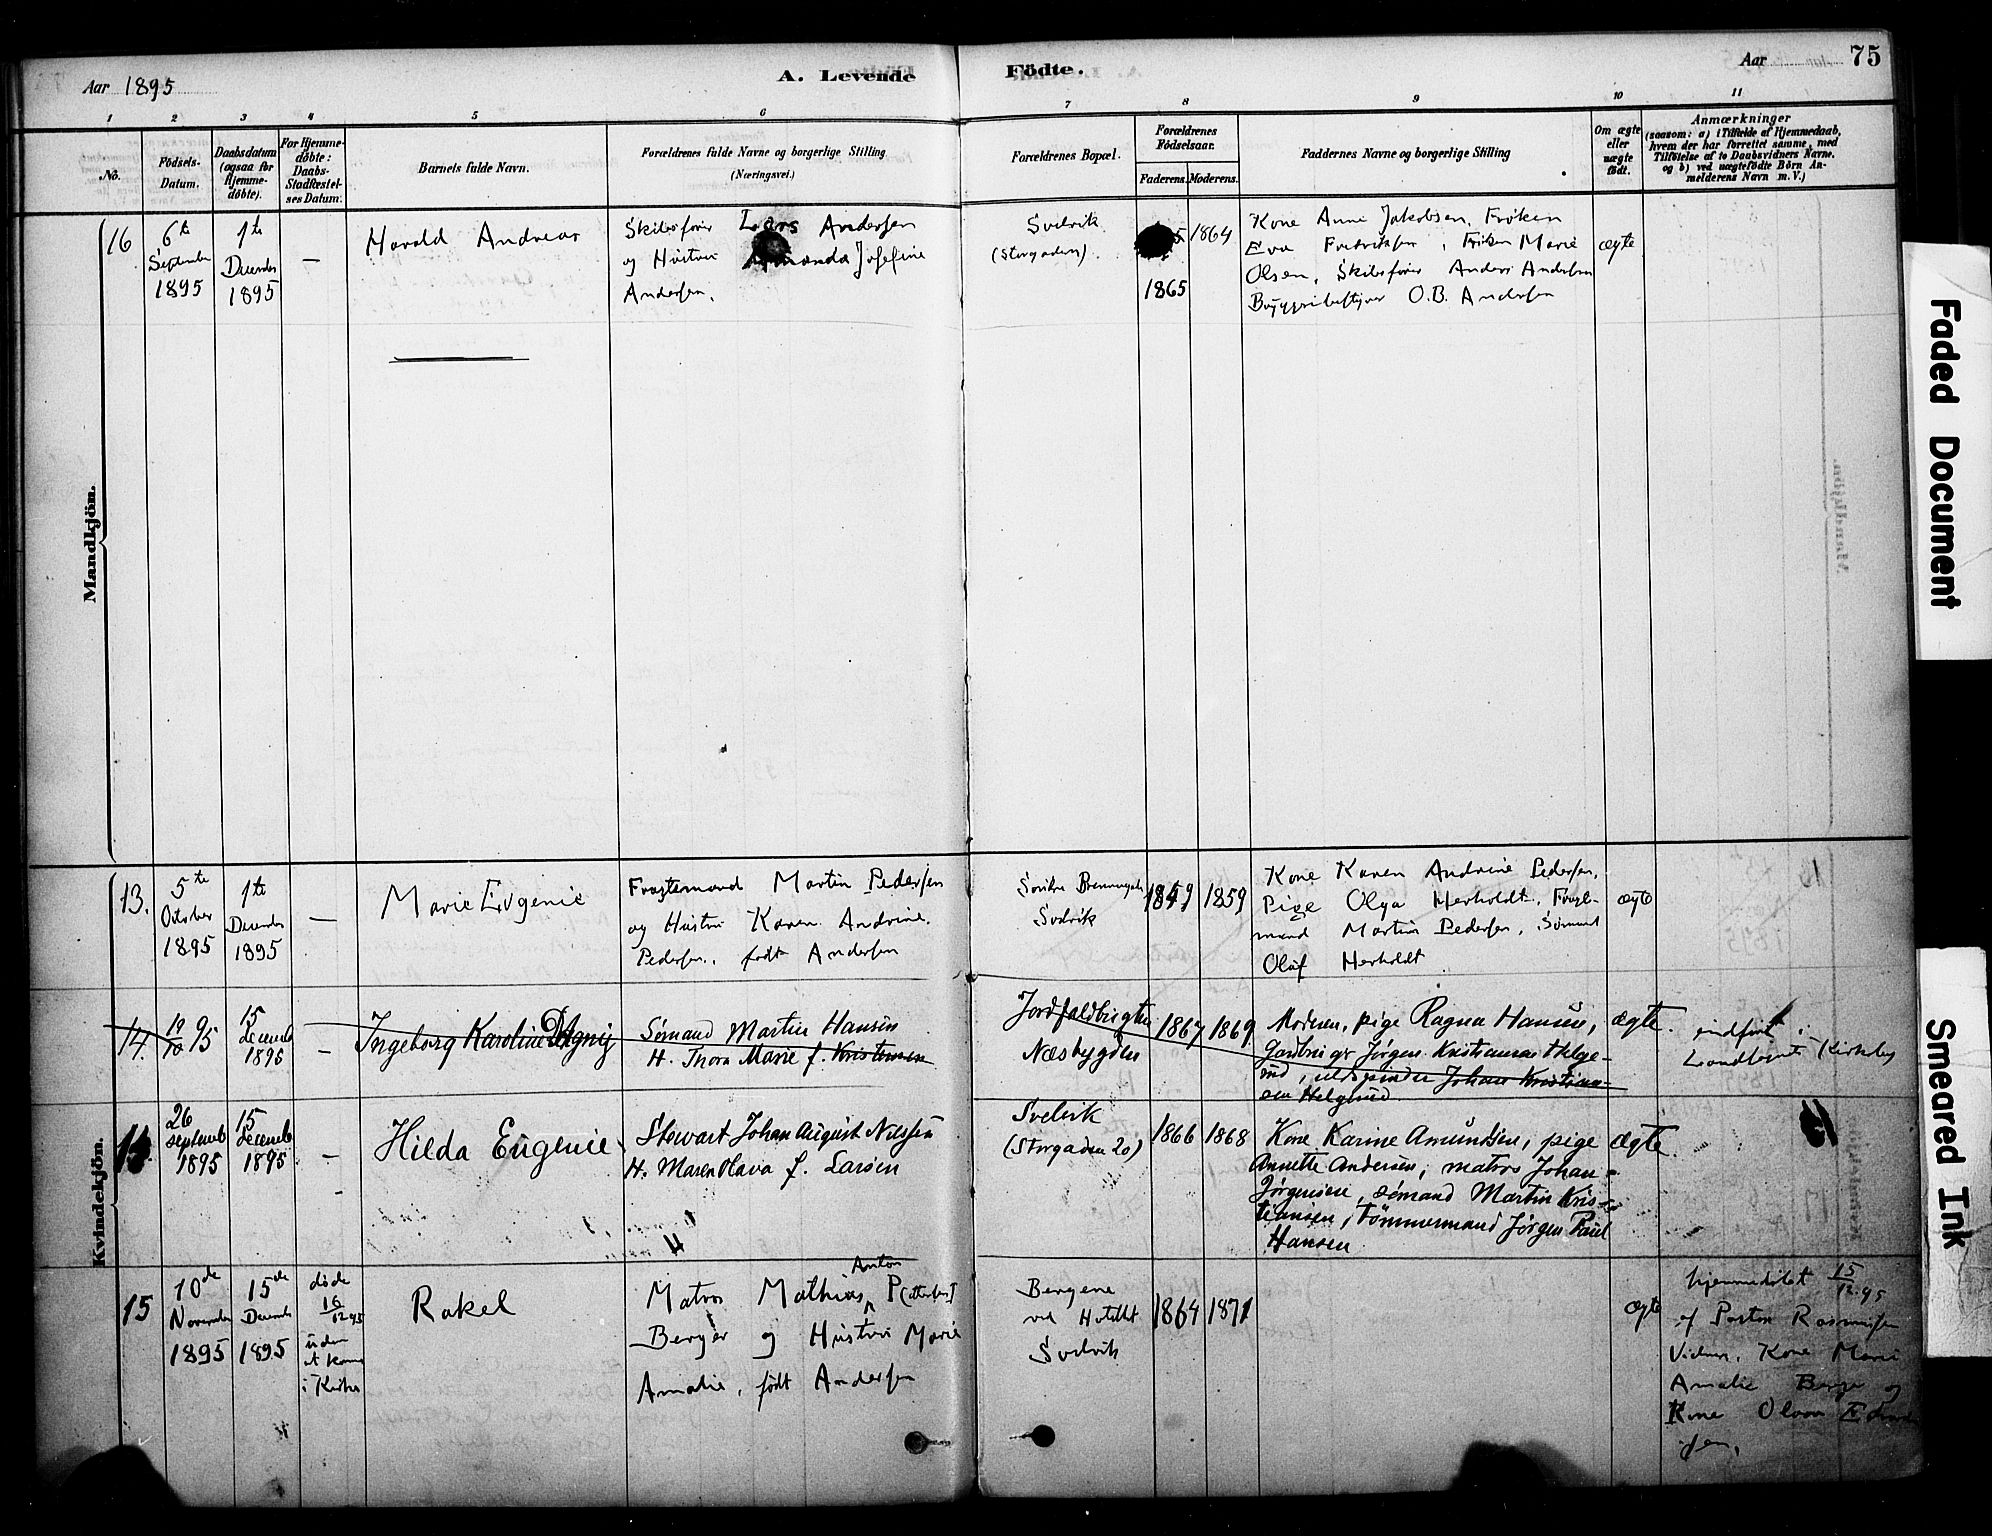 Aar 1895
A. Levende
Födte.
Aar
75
1
2
3
4
5
6
7
8
9
10
11
No.
Födsels-
Datum.
Daabsdatum
(ogsaa for
Hjemme-
døbte).
For Hjemme-
døbte:
Daabs-
Stadfæstel-
ses Datum.
Barnets fulde Navn.
Forældrenes fulde Navne og borgerlige Stilling
(Næringsvei.)
Forældrenes Bopæl.
Forældrenes
Födselsaar.
Faderens.
Moderens.
Faddernes Navne og borgerlige Stilling
Om ægte
eller
uægte
født.
Anmærkninger
(saasom: a) i Tilfælde af Hjemmedaab,
hvem der har forrettet samme, med
Tilföielse af to Daabsvidners Navne,
og b) ved uægtefödte Börn An-
melderens Navn m. V.)
Mandkjön.
16
6te
September
1895
1te
December
1895
—
Harald Andreas
Skibsfører Lars Andersen
og Hustru Amanda Josefine
Andersen.
Svelvik
(Storgaden).
1865
1864
Kone Anne Jakobsen, Frøken
Eva Fredriksen, Frøken Marie
Olsen, Skibsfører Anders Andersen
O.B. Andersen
ægte
Kvindekjön.
13.
5te
October
1895
1te
December
1895
—
Marie Eugenie
Fragtemand Martin Pedersen
og Hustru Karen Andrine
Pedersen, født Andersen
Svelvik
1859
1859
Kone Karen Andrine Pedersen,
Pige Olga Herholdt, Fragt-
mand Martin Pedersen, Sømand
Olaf Herholdt
ægte
14.
19/10 95
15
decemb
1895
—
Ingeborg Karoline Dagny
Sømand Martin Hansen
H. Thora Marie f. Kristensen
Jordfaldbugten
Næsbygden
1867
1869
Moderen, pige Ragna Hansen,
Gaardbruger Jørgen Kristiansen Helge-
rud, Johan Kristian-
sen Helgerud
ægte.
indført i
Landsognets Kirkebog
14.
26
septemb
1895
15
decemb
1895
—
Hilda Eugenie
Stewart Johan August Nilssen
H. Maren Olava f. Larsen
Svelvik
(Storgaden 20)
1866
1868
Kone Karine Amundsen, pige
Annette Andersen, matros Johan
Jørgensen, sømand Martin Kris-
tiansen, Tømmermand Jørgen Paul
Hansen
ægte.
15
10de
November
1895
15de
December
1895
døde
16/12 95
uden
at komme
i Kirke
Rakel
Anton
Matros Mathias P(ettersen)
Berger og Hustru Marie
Amalie, født Andersen
Bergene
ved Hotellet
Svelvik
1864
1871
ægte
hjemmedøbt 15/12.95
af Pastor Rasmussen
Vidner, Kone Marie
Amalie Berger og
Kone Olava
sen.
Faded Document
Smeared Ink